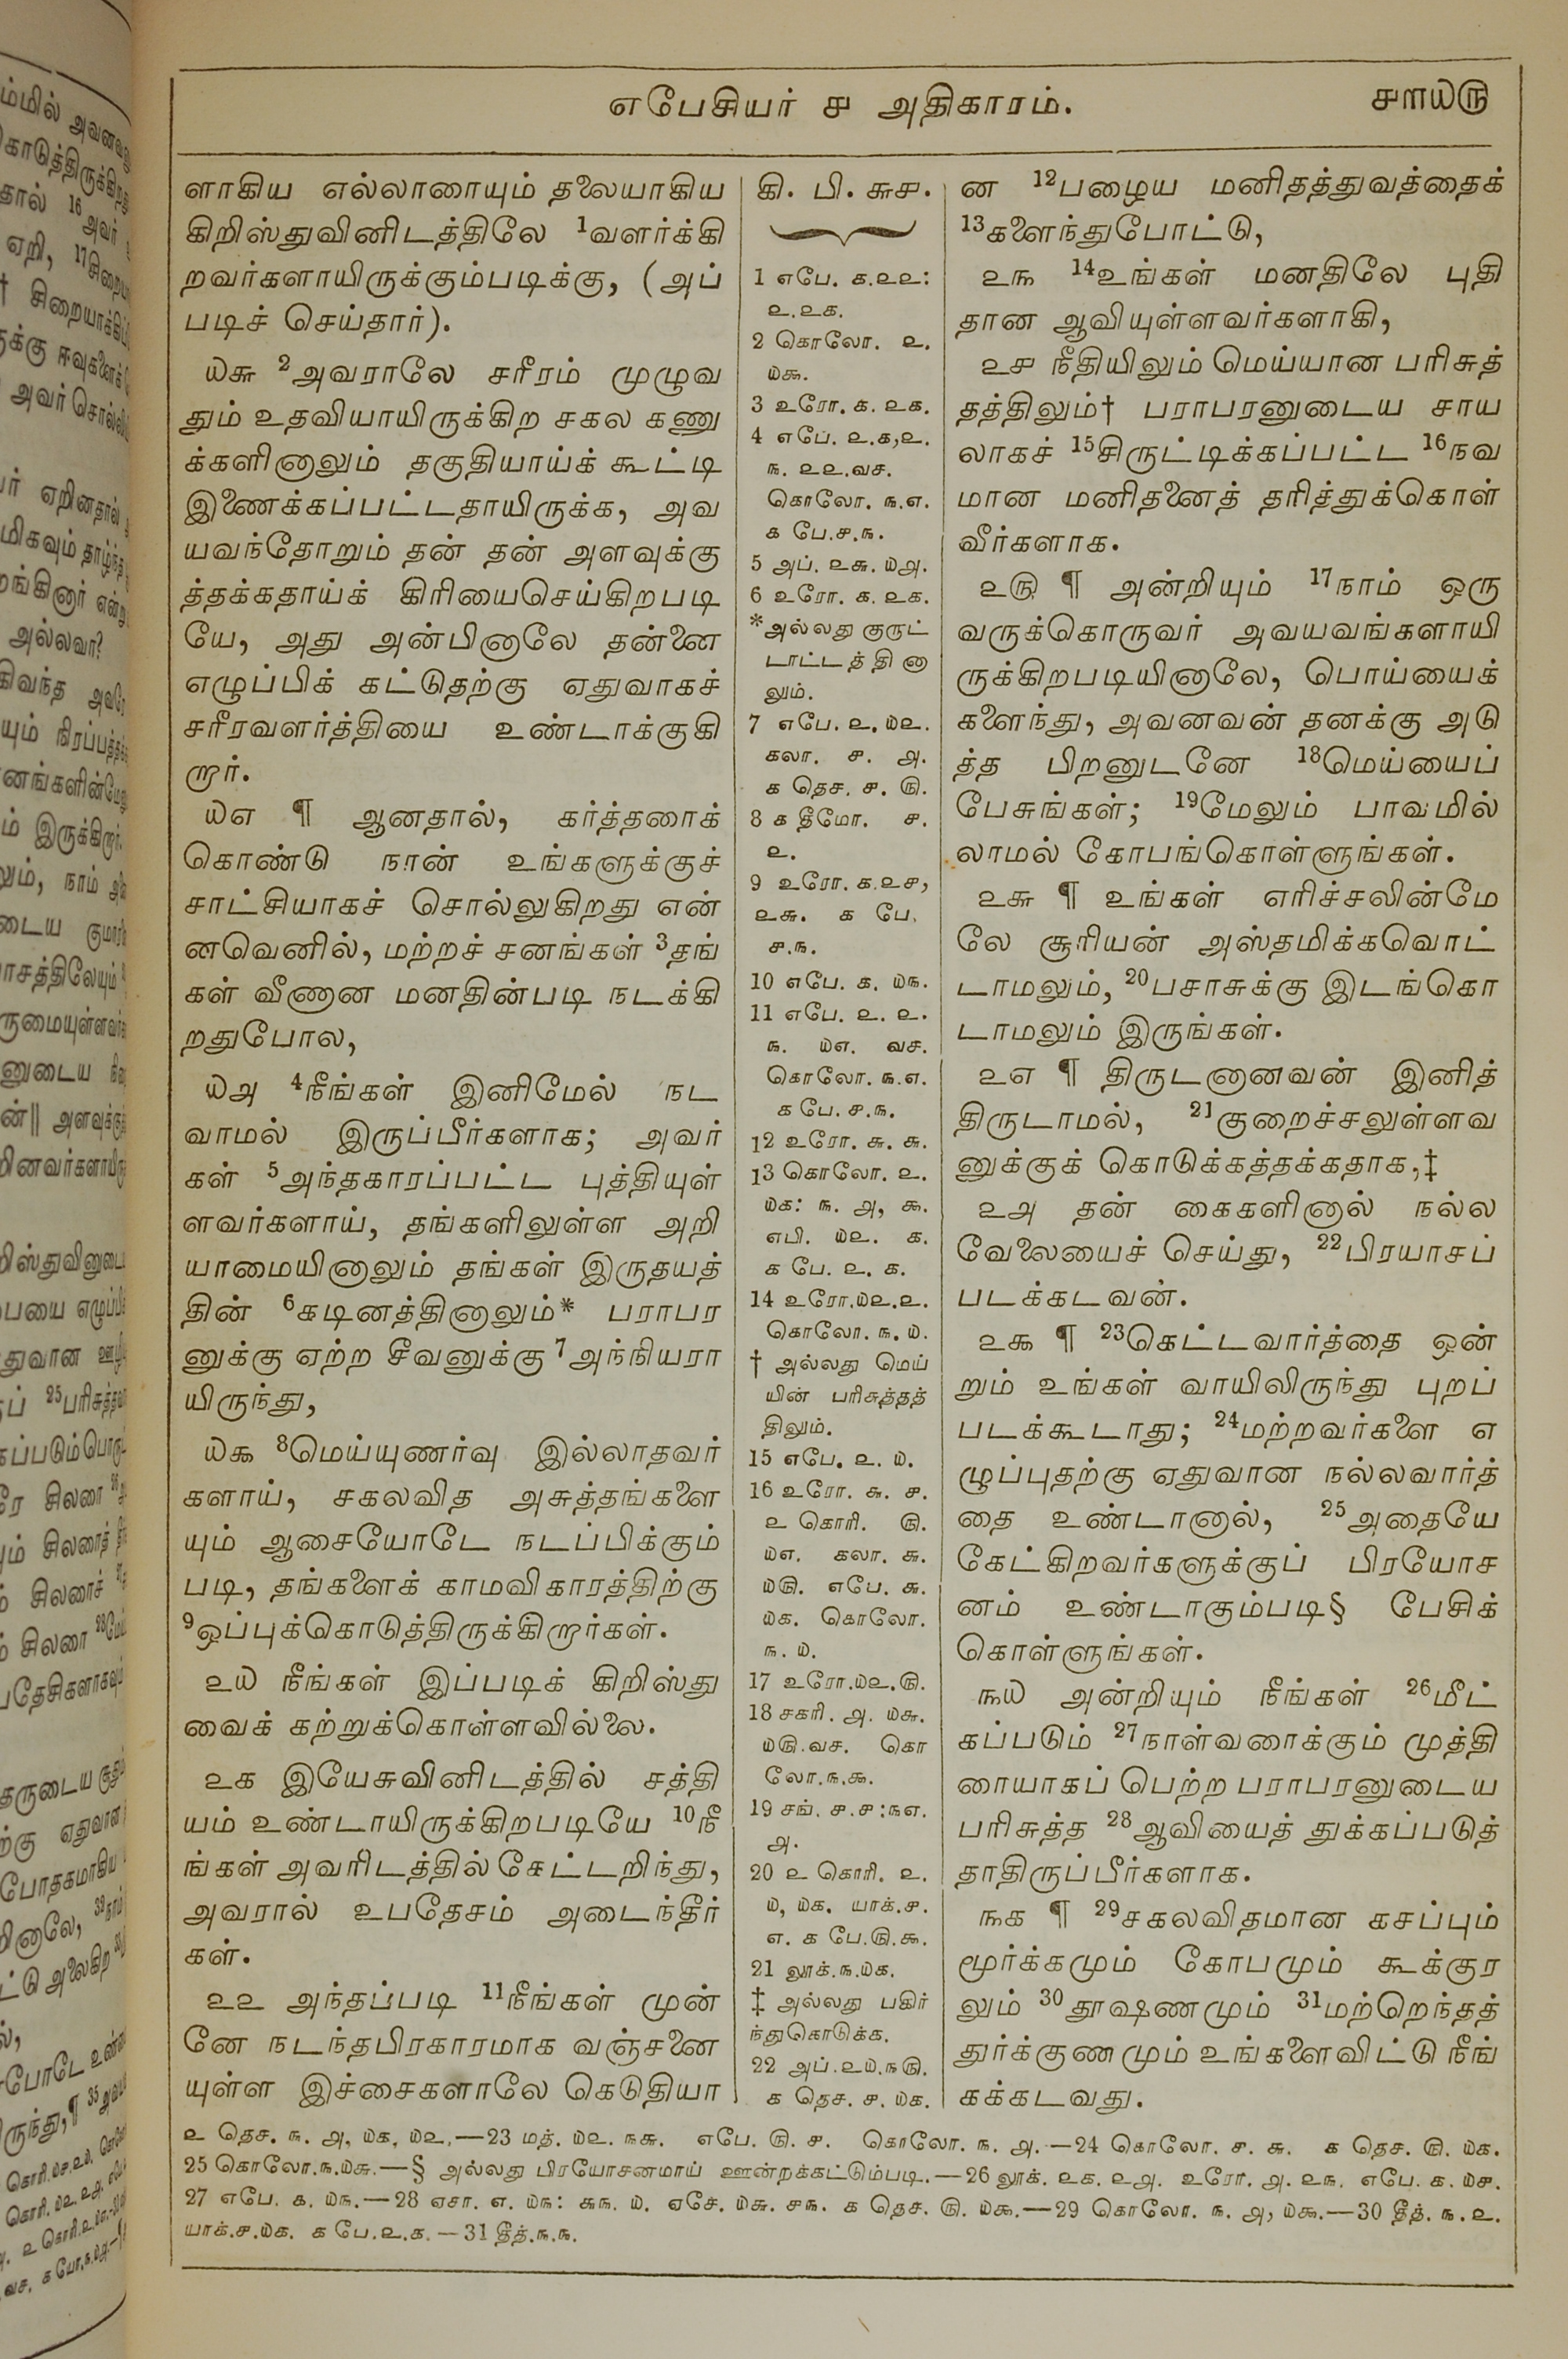 எபேசியர் ௪ அதிகாரம்.
௪௱௰௫
ளாகிய எல்லாரையும் தலையாகிய
கிறிஸ்துவினிடத்திலே ¹வளர்க்கி
றவர்களாயிருக்கும்படிக்கு, (அப்
படிச் செய்தார்).
௰௬ ²அவராலே சரீரம் முழுவ
தும் உதவியாயிருக்கிற சகல கணு
க்களினாலும் தகுதியாய்க் கூட்டி
இணைக்கப்பட்டதாயிருக்க, அவ
யவந்தோறும் தன் தன் அளவுக்கு
த்தக்கதாய்க் கிரியைசெய்கிறபடி
யே, அது அன்பினாலே தன்னை
எழுப்பிக் கட்டுதற்கு ஏதுவாகச்
சரீரவளர்த்தியை உண்டாக்குகி
றார்.
௰௭ ¶ ஆனதால், கர்த்தரைக்
கொண்டு நான் உங்களுக்குச்
சாட்சியாகச் சொல்லுகிறது என்
னவெனில், மற்றச் சனங்கள் ³தங்
கள் வீணான மனதின்படி நடக்கி
றதுபோல,
௰௮ ⁴நீங்கள் இனிமேல் நட
வாமல் இருப்பீர்களாக; அவர்
கள் ⁵அந்தகாரப்பட்ட புத்தியுள்
ளவர்களாய், தங்களிலுள்ள அறி
யாமையினாலும் தங்கள் இருதயத்
தின் ⁶கடினத்தினாலும்* பராபர
னுக்கு ஏற்ற சீவனுக்கு ⁷அந்நியரா
யிருந்து,
௰௯ ⁸மெய்யுணர்வு இல்லாதவர்
களாய், சகலவித அசுத்தங்களை
யும் ஆசையோடே நடப்பிக்கும்
படி, தங்களைக் காமவிகாரத்திற்கு
⁹ஒப்புக்கொடுத்திருக்கிறார்கள்.
௨௰ நீங்கள் இப்படிக் கிறிஸ்து
வைக் கற்றுக்கொள்ளவில்லை.
௨௧ இயேசுவினிடத்தில் சத்தி
யம் உண்டாயிருக்கிறபடியே ¹⁰நீ
ங்கள் அவரிடத்தில் கேட்டறிந்து,
அவரால் உபதேசம் அடைந்தீர்
கள்.
௨௨ அந்தப்படி ¹¹நீங்கள் முன்
னே நடந்தபிரகாரமாக வஞ்சனை
யுள்ள இச்சைகளாலே கெடுதியா
கி. பி. ௬௪.
1 எபே. ௧.௨௨:
௨.௨௧.
2 கொலோ. ௨.
௰௯.
3 உரோ. ௧. ௨௧.
4 எபே. ௨.௧,௨.
௩. ௨௨.வச.
கொலோ. ௩.௭.
௧ பே.௪.௩.
5 அப். ௨௬. ௰௮.
6 உரோ. ௧. ௨௧.
*அல்லது குருட்
டாட்டத்தினா
லும்.
7 எபே. ௨. ௰௨.
கலா. ௪. ௮.
௧ தெச. ௪. ௫.
8 ௧ தீமோ. ௪.
௨.
9 உரோ. ௧.௨௪,
௨௬. ௧ பே.
௪.௩.
10 எபே. ௧. ௰௩.
11 எபே. ௨. ௨.
௩. ௰௭. வச.
கொலோ. ௩.௭.
௧ பே. ௪.௩.
12 உரோ. ௬. ௬.
13 கொலோ. ௨.
௰௧: ௩. ௮, ௯.
எபி. ௰௨. ௧.
௧ பே. ௨. ௧.
14 உரோ.௰௨.௨.
கொலோ. ௩. ௰.
† அல்லது மெய்
யின் பரிசுத்தத்
திலும்.
15 எபே. ௨. ௰.
16 உரோ. ௬. ௪.
௨ கொரி. ௫.
௰௭. கலா. ௬.
௰௫. எபே. ௬.
௰௧. கொலோ.
௩. ௰.
17 உரோ.௰௨.௫.
18 சகரி. ௮. ௰௬.
௰௫.வச. கொ
லோ.௩.௯.
19 சங். ௪.௪:௩௭.
௮.
20 ௨ கொரி. ௨.
௰, ௰௧. யாக்.௪.
௭. ௧ பே.௫.௯.
21 லூக்.௩.௰௧.
‡ அல்லது பகிர்
ந்துகொடுக்க.
22 அப்.௨௰.௩௫.
௧ தெச. ௪. ௰௧.
ன ¹²பழைய மனிதத்துவத்தைக்
¹³களைந்துபோட்டு,
௨௩ ¹⁴உங்கள் மனதிலே புதி
தான ஆவியுள்ளவர்களாகி,
௨௪ நீதியிலும் மெய்யான பரிசுத்
தத்திலும்† பராபரனுடைய சாய
லாகச் ¹⁵சிருட்டிக்கப்பட்ட ¹⁶நவ
மான மனிதனைத் தரித்துக்கொள்
வீர்களாக.
௨௫ ¶ அன்றியும் ¹⁷நாம் ஒரு
வருக்கொருவர் அவயவங்களாயி
ருக்கிறபடியினாலே, பொய்யைக்
களைந்து, அவனவன் தனக்கு அடு
த்த பிறனுடனே ¹⁸மெய்யைப்
பேசுங்கள்; ¹⁹மேலும் பாவமில்
லாமல் கோபங்கொள்ளுங்கள்.
௨௬ ¶ உங்கள் எரிச்சலின்மே
லே சூரியன் அஸ்தமிக்கவொட்
டாமலும், ²⁰பசாசுக்கு இடங்கொ
டாமலும் இருங்கள்.
௨௭ ¶ திருடனானவன் இனித்
திருடாமல், ²¹குறைச்சலுள்ளவ
னுக்குக் கொடுக்கத்தக்கதாக,‡
௨௮ தன் கைகளினால் நல்ல
வேலையைச் செய்து, ²²பிரயாசப்
படக்கடவன்.
௨௯ ¶ ²³கெட்டவார்த்தை ஒன்
றும் உங்கள் வாயிலிருந்து புறப்
படக்கூடாது; ²⁴மற்றவர்களை எ
ழுப்புதற்கு ஏதுவான நல்லவார்த்
தை உண்டானால், ²⁵அதையே
கேட்கிறவர்களுக்குப் பிரயோச
னம் உண்டாகும்படி§ பேசிக்
கொள்ளுங்கள்.
௩௰ அன்றியும் நீங்கள் ²⁶மீட்
கப்படும் ²⁷நாள்வரைக்கும் முத்தி
ரையாகப் பெற்ற பராபரனுடைய
பரிசுத்த ²⁸ஆவியைத் துக்கப்படுத்
தாதிருப்பீர்களாக.
௩௧ ¶ ²⁹சகலவிதமான கசப்பும்
மூர்க்கமும் கோபமும் கூக்குர
லும் ³⁰தூஷணமும் ³¹மற்றெந்தத்
துர்க்குணமும் உங்களைவிட்டு நீங்
கக்கடவது.
௨ தெச. ௩. ௮, ௰௧, ௰௨.—23 மத். ௰௨. ௩௬. எபே. ௫. ௪. கொலோ. ௩. ௮.—24 கொலோ. ௪. ௬. ௧ தெச. ௫. ௰௧.
25 கொலோ.௩.௰௬.—§ அல்லது பிரயோசனமாய் ஊன்றக்கட்டும்படி.—26 லூக். ௨௧. ௨௮. உரோ. ௮. ௨௩. எபே. ௧. ௰௪.
27 எபே. ௧. ௰௩.—28 ஏசா. ௭. ௰௩: ௬௩. ௰. ஏசே. ௰௬. ௪௩. ௧ தெச. ௫. ௰௯.—29 கொலோ. ௩. ௮, ௰௯.—30 தீத். ௩. ௨.
யாக்.௪.௰௧. ௧ பே.௨.௧.—31 தீத்.௩.௩.